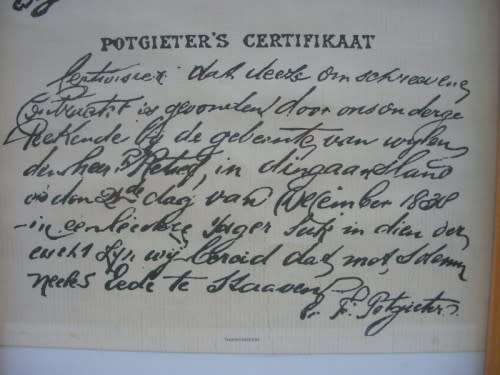 POTGIETER'S CERTIFIKAAT
Certiviseer dat deese omschreevene
Contract is gevonden door ons onderge
teekende bij de gebeente van wijlen
den heer P Retief, in dingaansland
op den 21de dag van December 1838
in een leedere Jager Sak in dien ver
eicht Zijn wij bereid dat mot solemn
neelen Eede te Staaven
E. F. Potgieter.